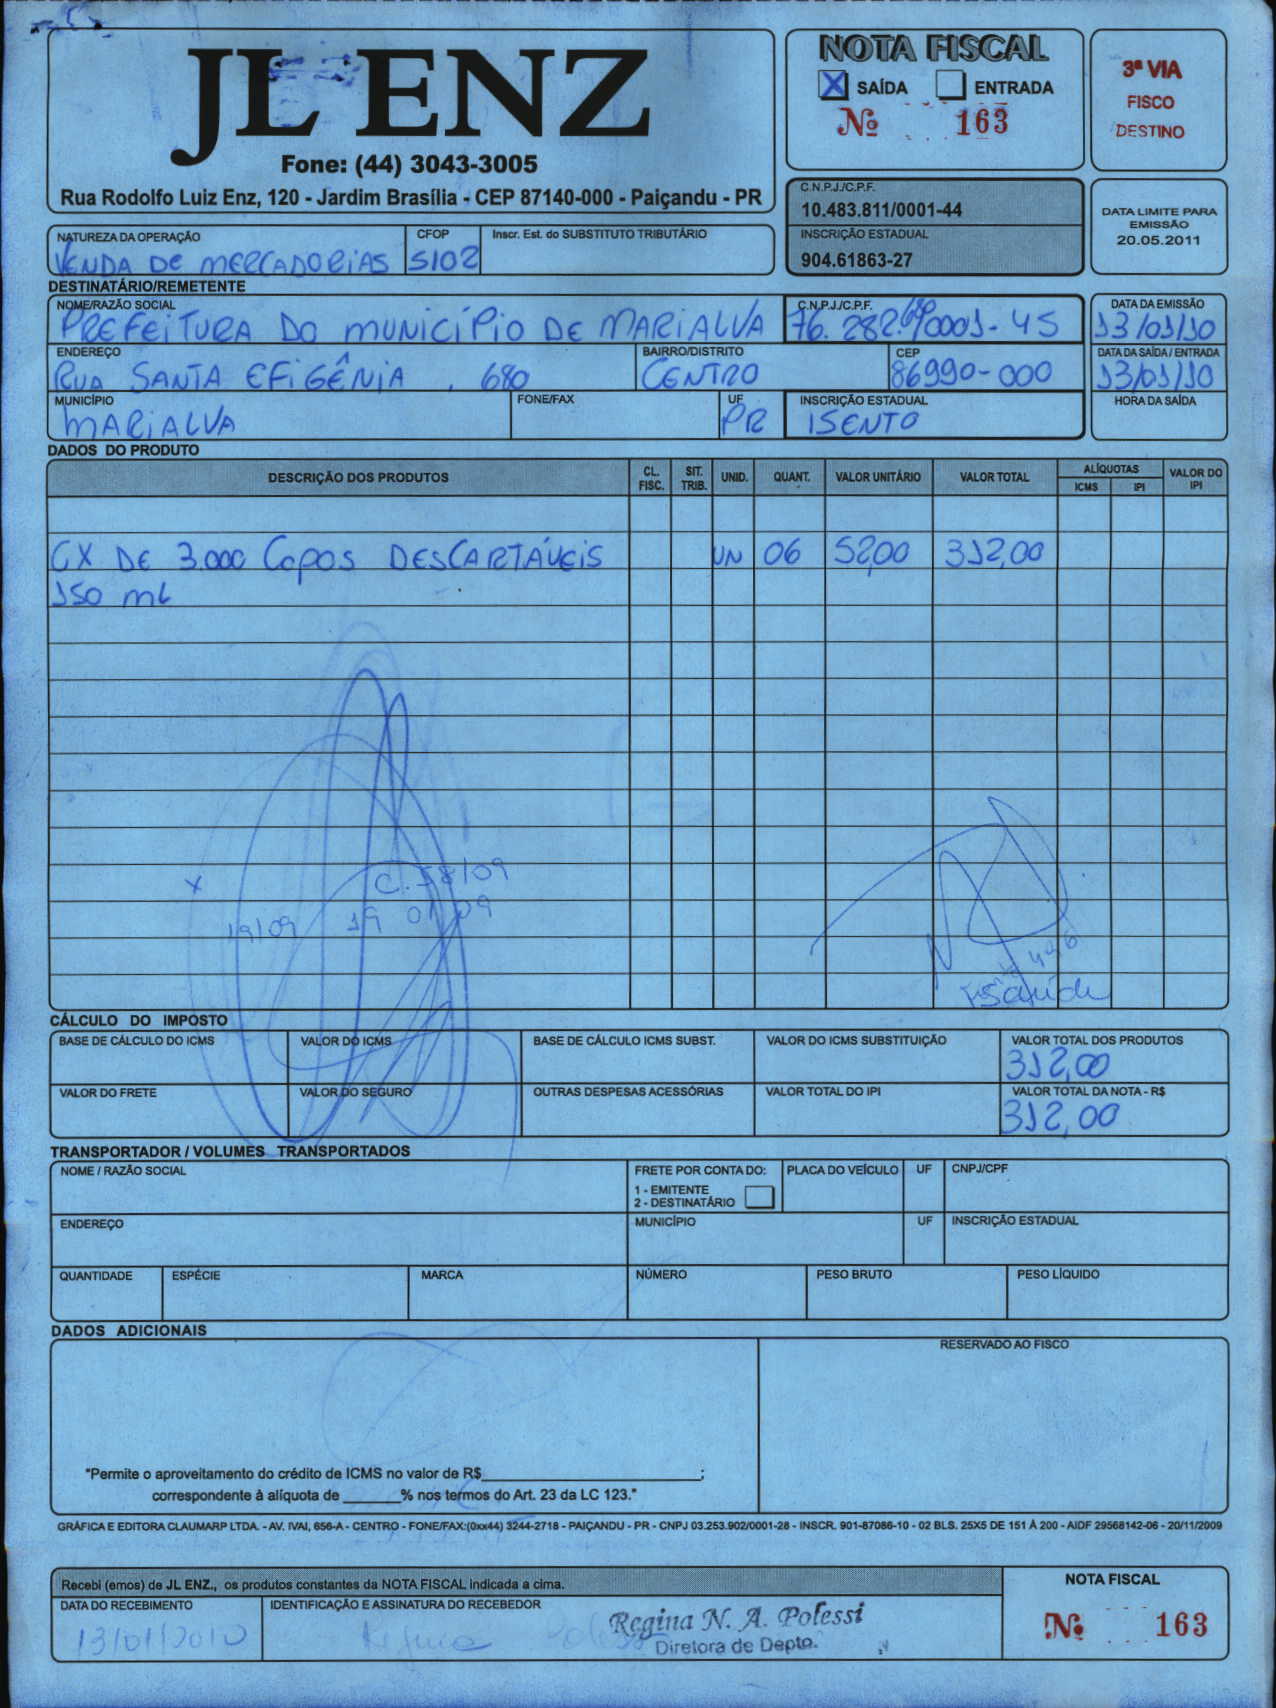 JL ENZ
Fone: (44) 3043-3005
Rua Rodolfo Luiz Enz, 120 - Jardim Brasília - CEP 87140-000 - Paiçandu - PR
NOTA FISCAL
X SAÍDA ENTRADA
Nº 163
3ª VIA
FISCO
DESTINO
C.N.P.J./C.P.F.
10.483.811/0001-44
INSCRIÇÃO ESTADUAL
904.61863-27
DATA LIMITE PARA
EMISSÃO
20.05.2011
NATUREZA DA OPERAÇÃO CFOP Inscr. Est. do SUBSTITUTO TRIBUTÁRIO
VENDA DE MERCADORIAS 5102
DESTINATÁRIO/REMETENTE
NOME/RAZÃO SOCIAL C.N.P.J./C.P.F. DATA DA EMISSÃO
PREFEITURA DO MUNICÍPIO DE MARIALVA 76.282.680/0001-45 13/01/10
ENDEREÇO BAIRRO/DISTRITO CEP DATA DA SAÍDA / ENTRADA
RUA SANTA EFIGÊNIA, 680 CENTRO 86990-000 13/01/10
MUNICÍPIO FONE/FAX UF INSCRIÇÃO ESTADUAL HORA DA SAÍDA
MARIALVA PR ISENTO
DADOS DO PRODUTO
DESCRIÇÃO DOS PRODUTOS CL. FISC. SIT. TRIB. UNID. QUANT. VALOR UNITÁRIO VALOR TOTAL ALÍQUOTAS ICMS IPI VALOR DO IPI
CX DE 3.000 COPOS DESCARTÁVEIS UN 06 52,00 312,00
150 ML
X C. 58/09
19/09 19 01/09
496
Saúde
CÁLCULO DO IMPOSTO
BASE DE CÁLCULO DO ICMS VALOR DO ICMS BASE DE CÁLCULO ICMS SUBST. VALOR DO ICMS SUBSTITUIÇÃO VALOR TOTAL DOS PRODUTOS
312,00
VALOR DO FRETE VALOR DO SEGURO OUTRAS DESPESAS ACESSÓRIAS VALOR TOTAL DO IPI VALOR TOTAL DA NOTA - R$
312,00
TRANSPORTADOR / VOLUMES TRANSPORTADOS
NOME / RAZÃO SOCIAL FRETE POR CONTA DO: PLACA DO VEÍCULO UF CNPJ/CPF
1 - EMITENTE
2 - DESTINATÁRIO
ENDEREÇO MUNICÍPIO UF INSCRIÇÃO ESTADUAL
QUANTIDADE ESPÉCIE MARCA NÚMERO PESO BRUTO PESO LÍQUIDO
DADOS ADICIONAIS
RESERVADO AO FISCO
"Permite o aproveitamento do crédito de ICMS no valor de R$____________;
correspondente à alíquota de ______% nos termos do Art. 23 da LC 123."
GRÁFICA E EDITORA CLAUMARP LTDA. - AV. IVAI, 656-A - CENTRO - FONE/FAX:(0xx44) 3244-2718 - PAIÇANDU - PR - CNPJ 03.253.902/0001-28 - INSCR. 901-87086-10 - 02 BLS. 25X5 DE 151 À 200 - AIDF 29568142-06 - 20/11/2009
Recebi (emos) de JL ENZ., os produtos constantes da NOTA FISCAL indicada a cima.
DATA DO RECEBIMENTO IDENTIFICAÇÃO E ASSINATURA DO RECEBEDOR
13/01/2010
Regina N. A. Polessi
Diretora de Depto.
NOTA FISCAL
Nº 163